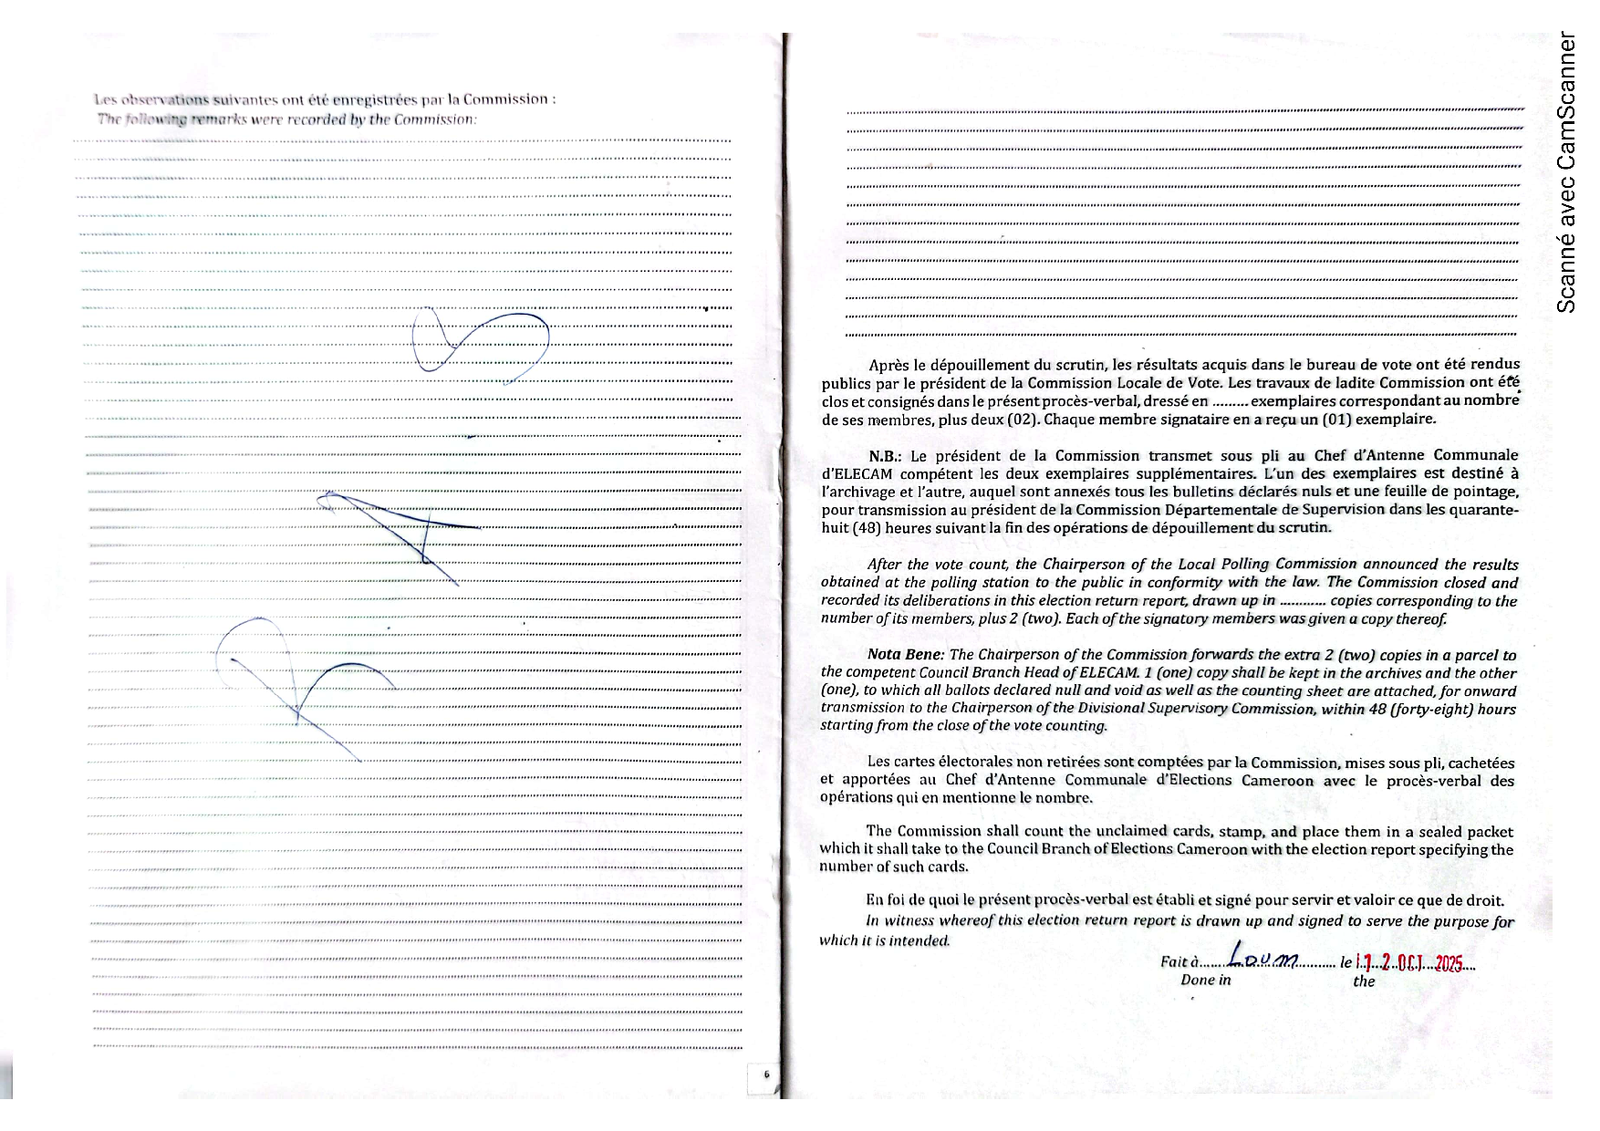 Les observations suivantes ont été enregistrées par la Commission :
The following remarks were recorded by the Commission:
6
Après le dépouillement du scrutin, les résultats acquis dans le bureau de vote ont été rendus
publics par le président de la Commission Locale de Vote. Les travaux de ladite Commission ont été
clos et consignés dans le présent procès-verbal, dressé en ......... exemplaires correspondant au nombre
de ses membres, plus deux (02). Chaque membre signataire en a reçu un (01) exemplaire.
N.B.: Le président de la Commission transmet sous pli au Chef d'Antenne Communale
d'ELECAM compétent les deux exemplaires supplémentaires. L'un des exemplaires est destiné à
l'archivage et l'autre, auquel sont annexés tous les bulletins déclarés nuls et une feuille de pointage,
pour transmission au président de la Commission Départementale de Supervision dans les quarante-
huit (48) heures suivant la fin des opérations de dépouillement du scrutin.
After the vote count, the Chairperson of the Local Polling Commission announced the results
obtained at the polling station to the public in conformity with the law. The Commission closed and
recorded its deliberations in this election return report, drawn up in ............ copies corresponding to the
number of its members, plus 2 (two). Each of the signatory members was given a copy thereof.
Nota Bene: The Chairperson of the Commission forwards the extra 2 (two) copies in a parcel to
the competent Council Branch Head of ELECAM. 1 (one) copy shall be kept in the archives and the other
(one), to which all ballots declared null and void as well as the counting sheet are attached, for onward
transmission to the Chairperson of the Divisional Supervisory Commission, within 48 (forty-eight) hours
starting from the close of the vote counting.
Les cartes électorales non retirées sont comptées par la Commission, mises sous pli, cachetées
et apportées au Chef d'Antenne Communale d'Elections Cameroon avec le procès-verbal des
opérations qui en mentionne le nombre.
The Commission shall count the unclaimed cards, stamp, and place them in a sealed packet
which it shall take to the Council Branch of Elections Cameroon with the election report specifying the
number of such cards.
En foi de quoi le présent procès-verbal est établi et signé pour servir et valoir ce que de droit.
In witness whereof this election return report is drawn up and signed to serve the purpose for
which it is intended.
Fait à Loum le 12 OCT 2025
Done in the
Scanné avec CamScanner